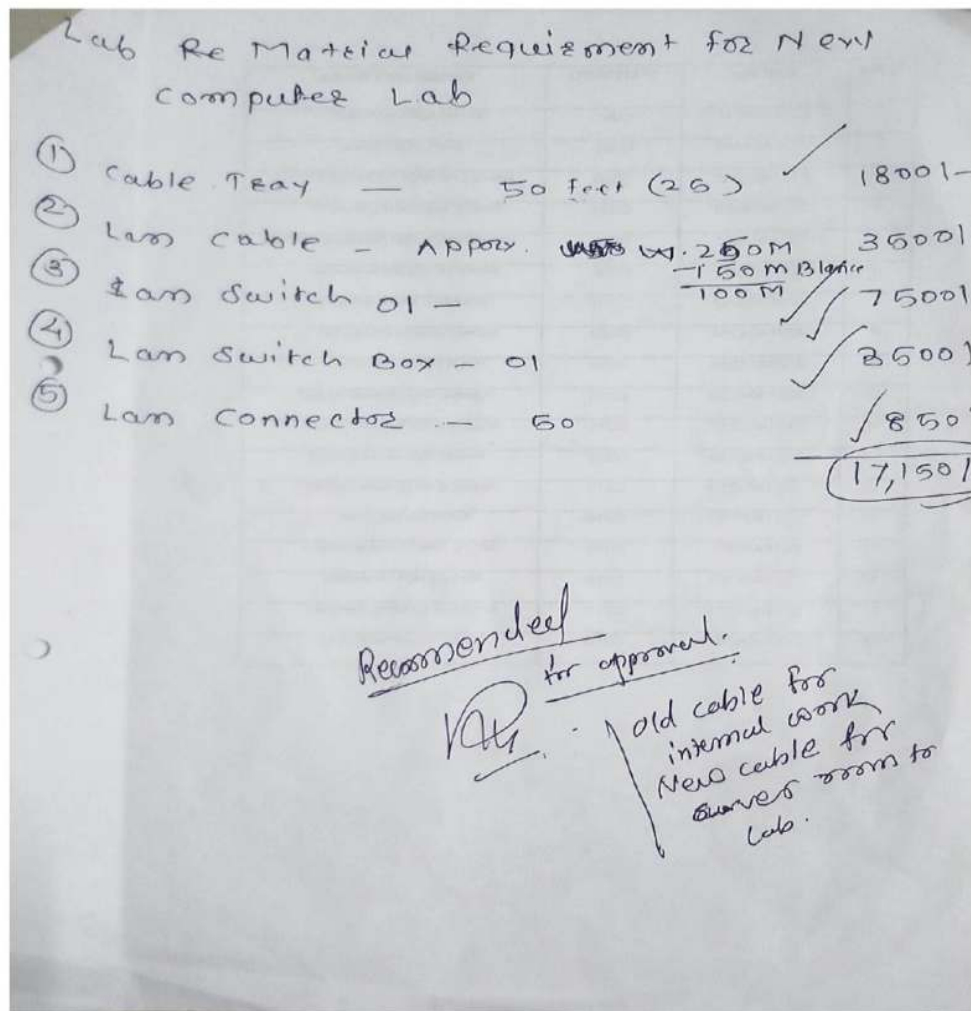 Lab Re Mateial Requirment for New
Computer Lab
① Cable Tray — 50 feet (25) ✓ 1800/-
② Lan cable - Apporx. 250M 3500/
-150m Blance
100M
③ Lan Switch 01 - 7500/
④ Lan Switch Box - 01 3500/
⑤ Lan Connector — 50 850/
17,150/
Recommended
for approval.
old cable for
internal work
New cable for
server room to
Lab.